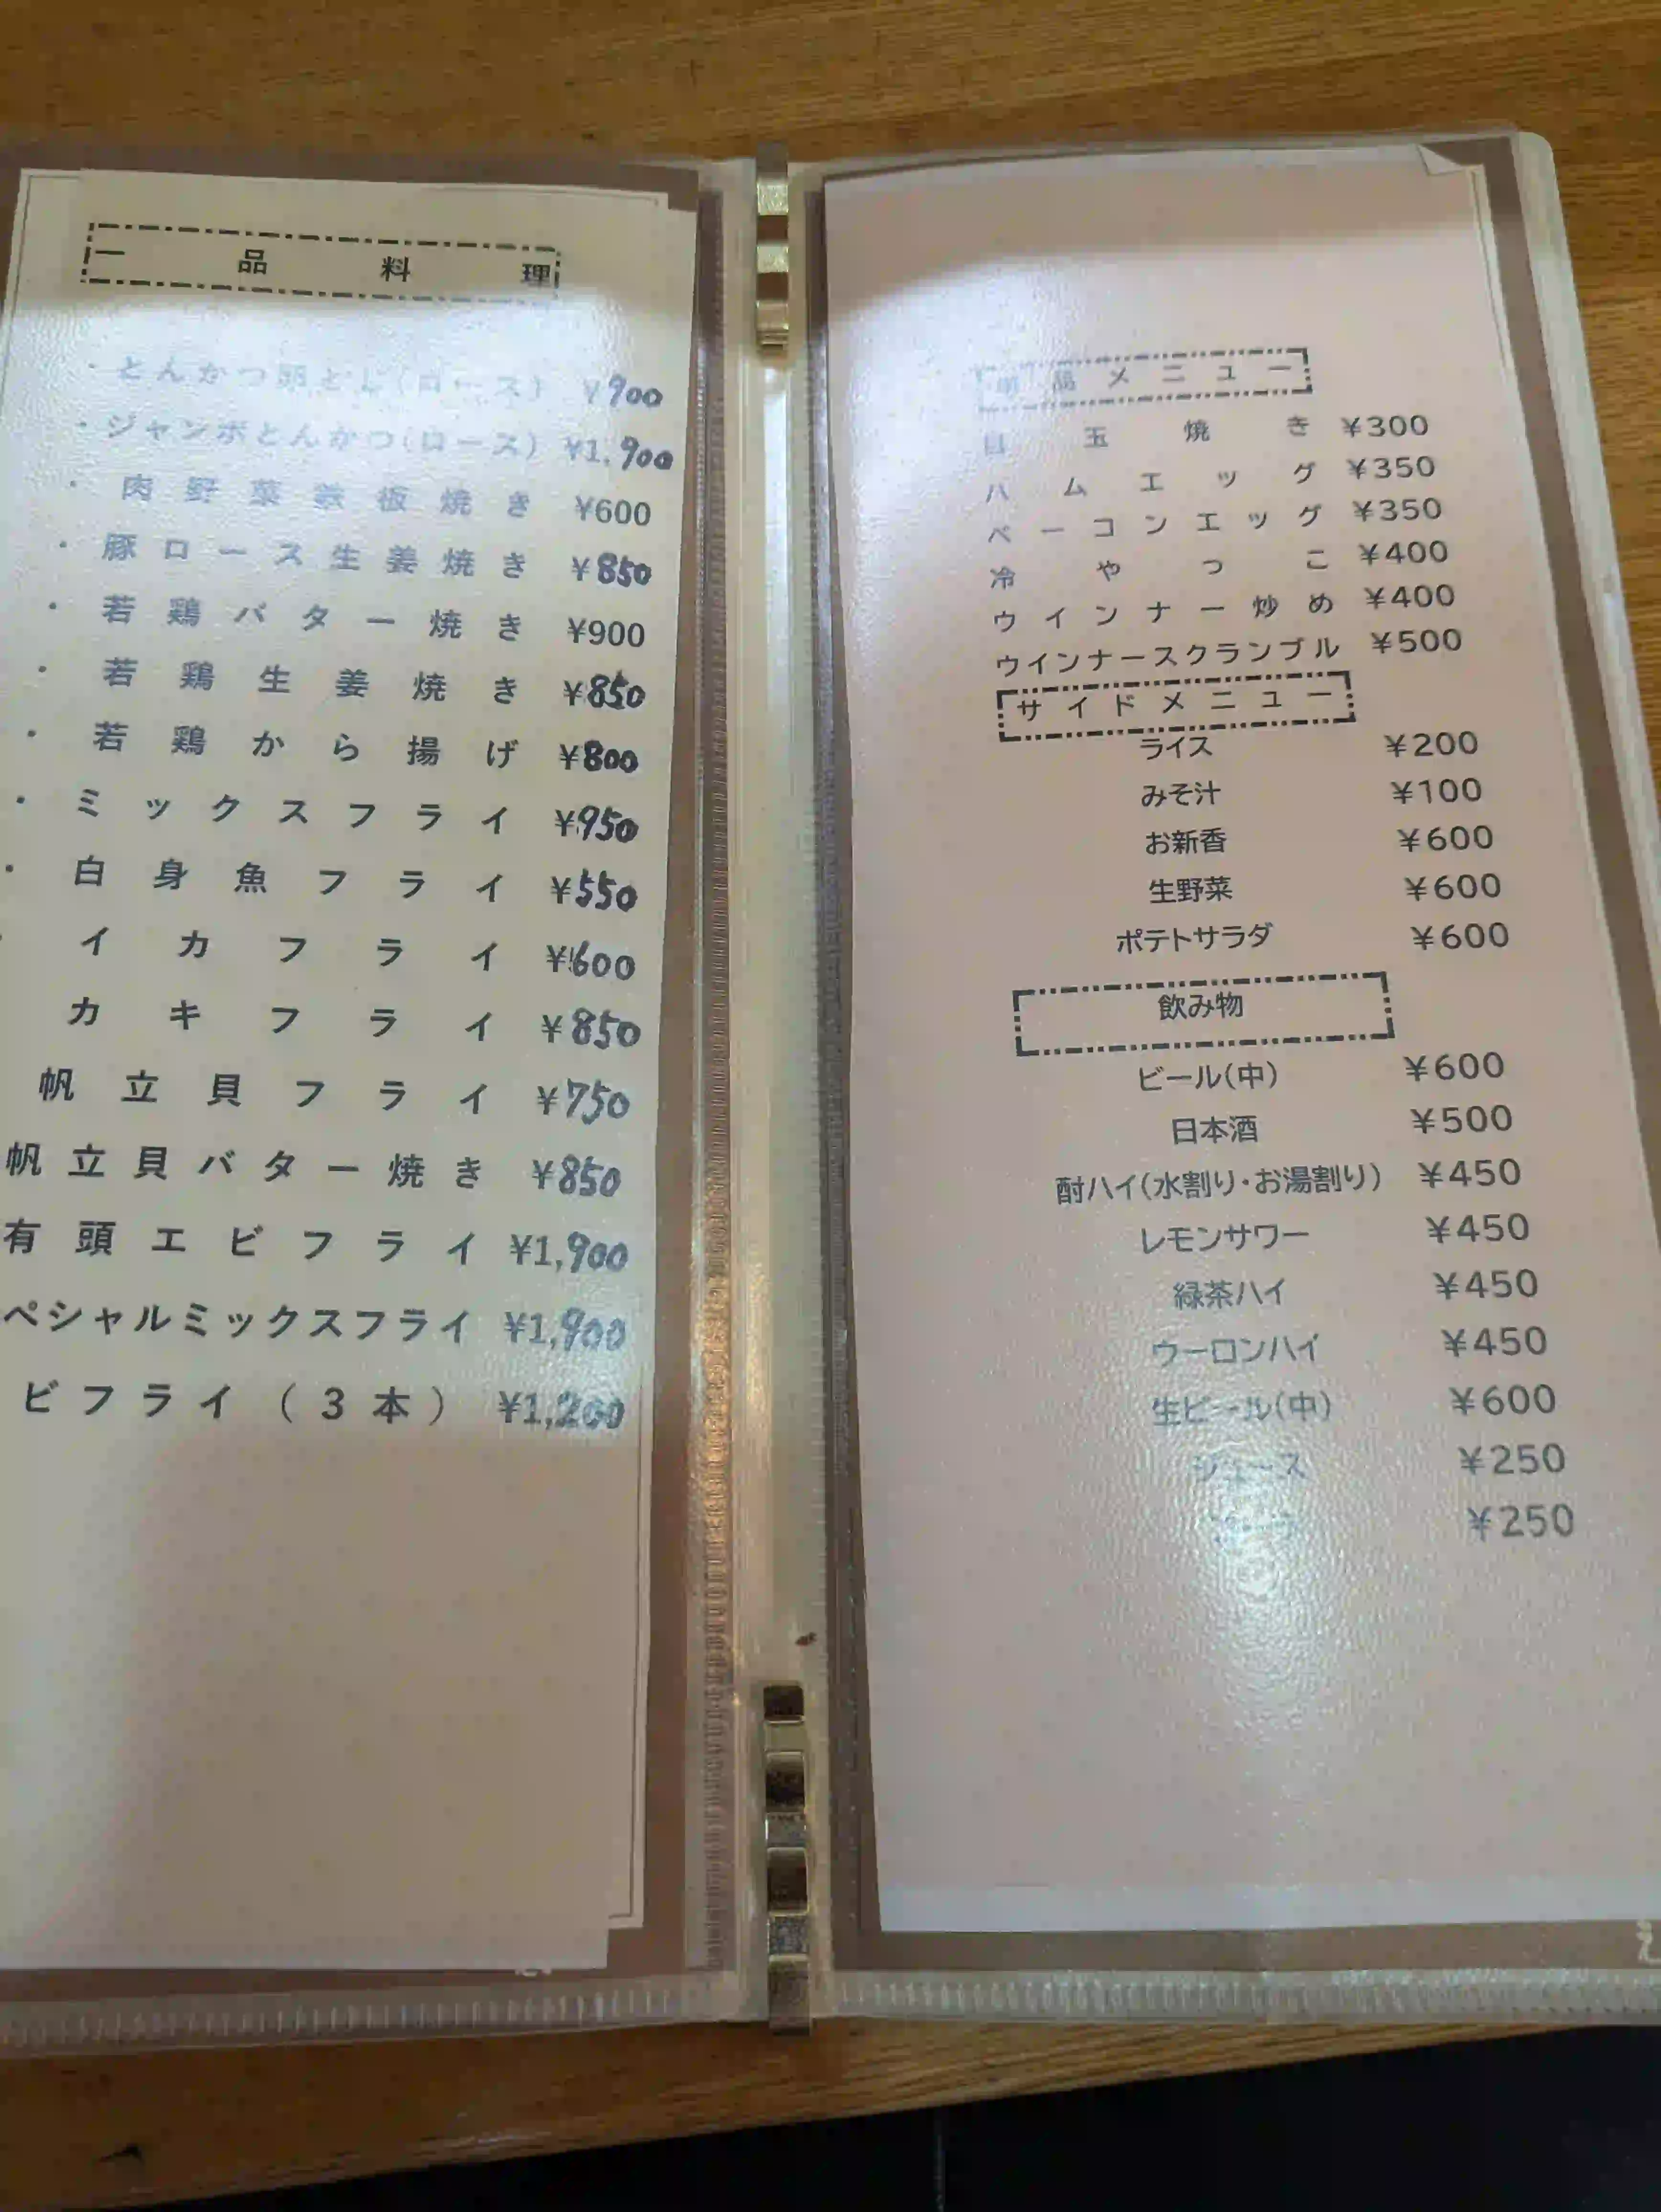 一品料理
・とんかつ卵とじ(ロース) ¥900
・ジャンボとんかつ(ロース) ¥1,900
・肉野菜鉄板焼き ¥600
・豚ロース生姜焼き ¥850
・若鶏バター焼き ¥900
・若鶏生姜焼き ¥850
・若鶏から揚げ ¥800
・ミックスフライ ¥950
・白身魚フライ ¥550
イカフライ ¥600
カキフライ ¥850
帆立貝フライ ¥750
帆立貝バター焼き ¥850
有頭エビフライ ¥1,900
ペシャルミックスフライ ¥1,900
ビフライ(3本) ¥1,200
品メニュー
目玉焼き ¥300
ハムエッグ ¥350
ベーコンエッグ ¥350
冷やっこ ¥400
ウインナー炒め ¥400
ウインナースクランブル ¥500
サイドメニュー
ライス ¥200
みそ汁 ¥100
お新香 ¥600
生野菜 ¥600
ポテトサラダ ¥600
飲み物
ビール(中) ¥600
日本酒 ¥500
酎ハイ(水割り・お湯割り) ¥450
レモンサワー ¥450
緑茶ハイ ¥450
ウーロンハイ ¥450
生ビール(中) ¥600
ジュース ¥250
¥250